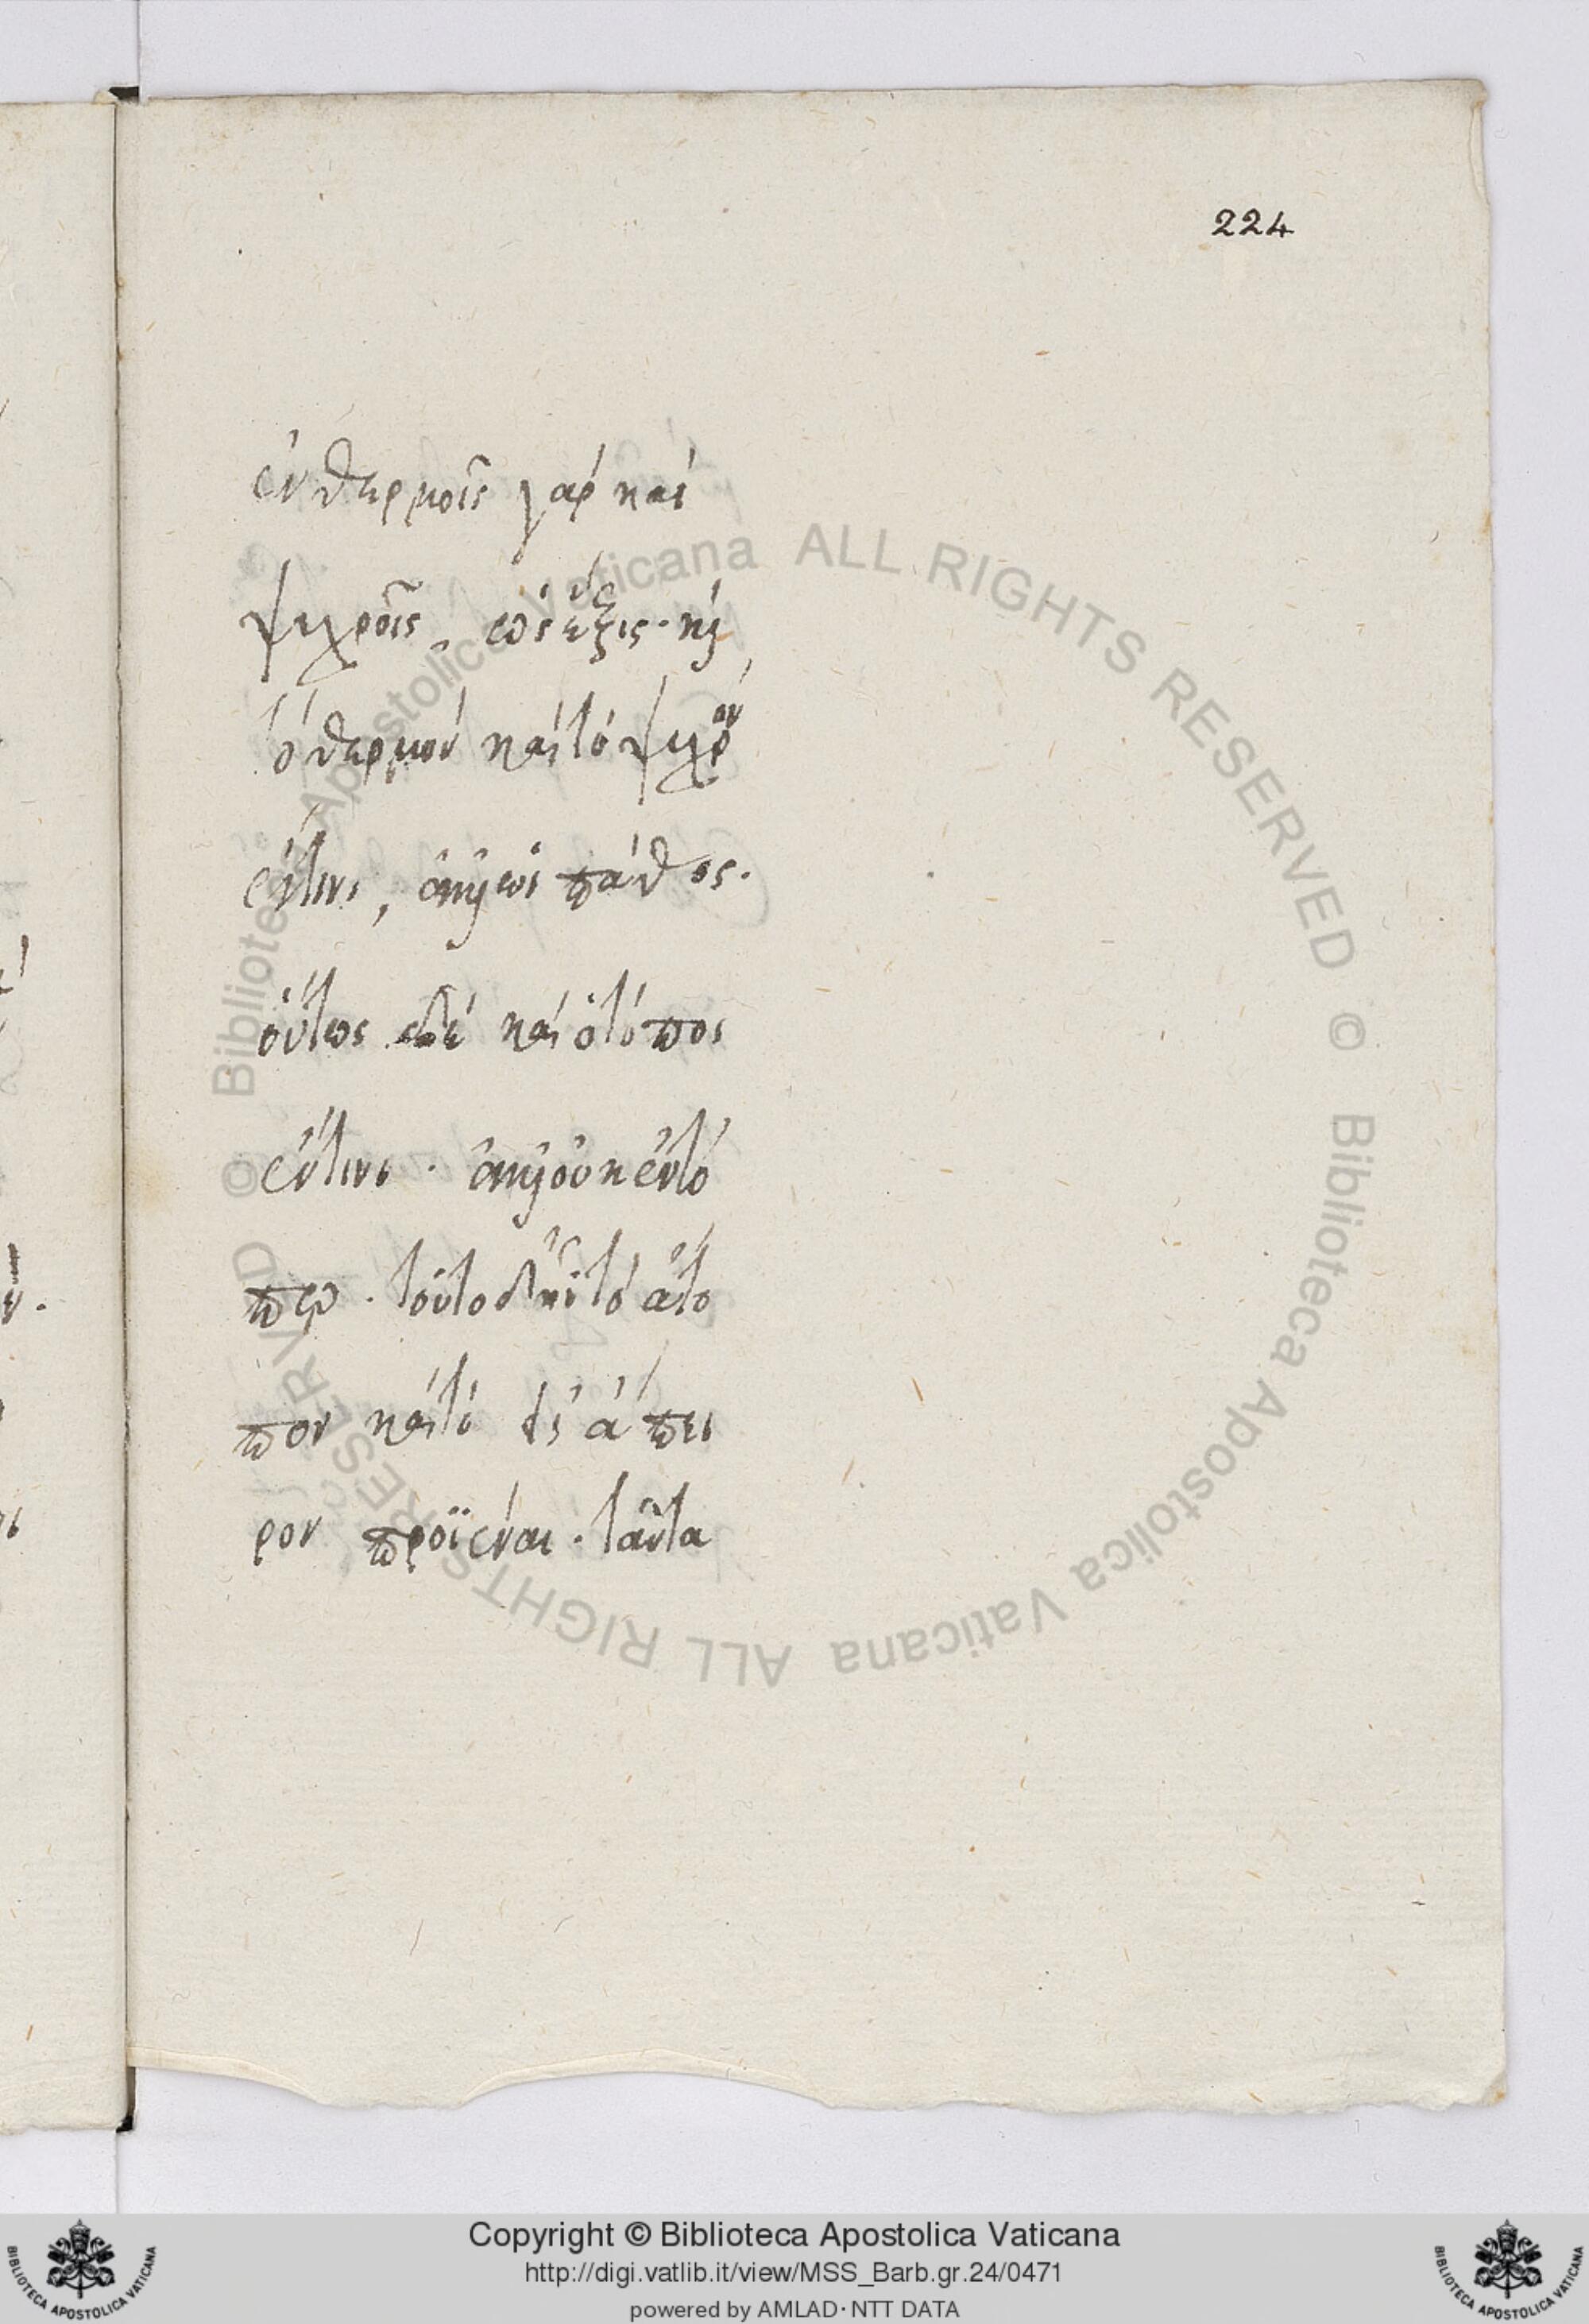 224
ἐν θερμοῖς γάρ καί
ψυχροῖς, ὡς ἕξις. καὶ
τό θερμόν καί τό ψυχρόν
ἔν τινι, ἀλλ' ὡς πάθος.
οὕτως δέ καί ὁ τόπος
ἔν τινι. ἀλλ' οὐκ ἐν τό
πω. τοῦτο δ' ἦν τό ἄτο
πον καί τό εἰς ἄπει
ρον προϊέναι. ταῦτα
© Biblioteca Apostolica Vaticana ALL RIGHTS RESERVED © Biblioteca Apostolica Vaticana ALL RIGHTS RESERVED
Copyright © Biblioteca Apostolica Vaticana
http://digi.vatlib.it/view/MSS_Barb.gr.24/0471
powered by AMLAD · NTT DATA
BIBLIOTECA APOSTOLICA VATICANA
BIBLIOTECA APOSTOLICA VATICANA